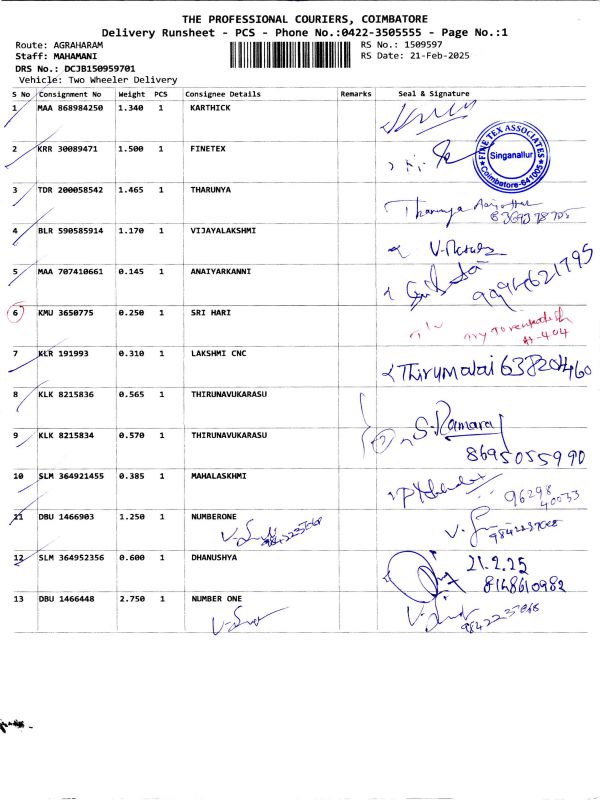 THE PROFESSIONAL COURIERS, COIMBATORE
Delivery Runsheet - PCS - Phone No.:0422-3505555 - Page No.:1
Route: AGRAHARAM RS No.: 1509597
Staff: MAHAMANI RS Date: 21-Feb-2025
DRS No.: DCJB150959701
Vehicle: Two Wheeler Delivery
S No Consignment No Weight PCS Consignee Details Remarks Seal & Signature
1 MAA 868984250 1.340 1 KARTHICK
2 KRR 30089471 1.500 1 FINETEX
FINE TEX ASSOCIATES
Singanallur
Coimbatore-641005
3 TDR 200058542 1.465 1 THARUNYA
Tharunya
4 BLR 590585914 1.170 1 VIJAYALAKSHMI
5 MAA 707410661 0.145 1 ANAIYARKANNI
9994621795
6 KMU 3650775 0.250 1 SRI HARI
7 KLR 191993 0.310 1 LAKSHMI CNC
Thirumalai
8 KLK 8215836 0.565 1 THIRUNAVUKARASU
S. Ramaraj
9 KLK 8215834 0.570 1 THIRUNAVUKARASU
8695055990
10 SLM 364921455 0.385 1 MAHALASKHMI
96298
40033
11 DBU 1466903 1.250 1 NUMBERONE
12 SLM 364952356 0.600 1 DHANUSHYA
21.2.25
8148610982
13 DBU 1466448 2.750 1 NUMBER ONE